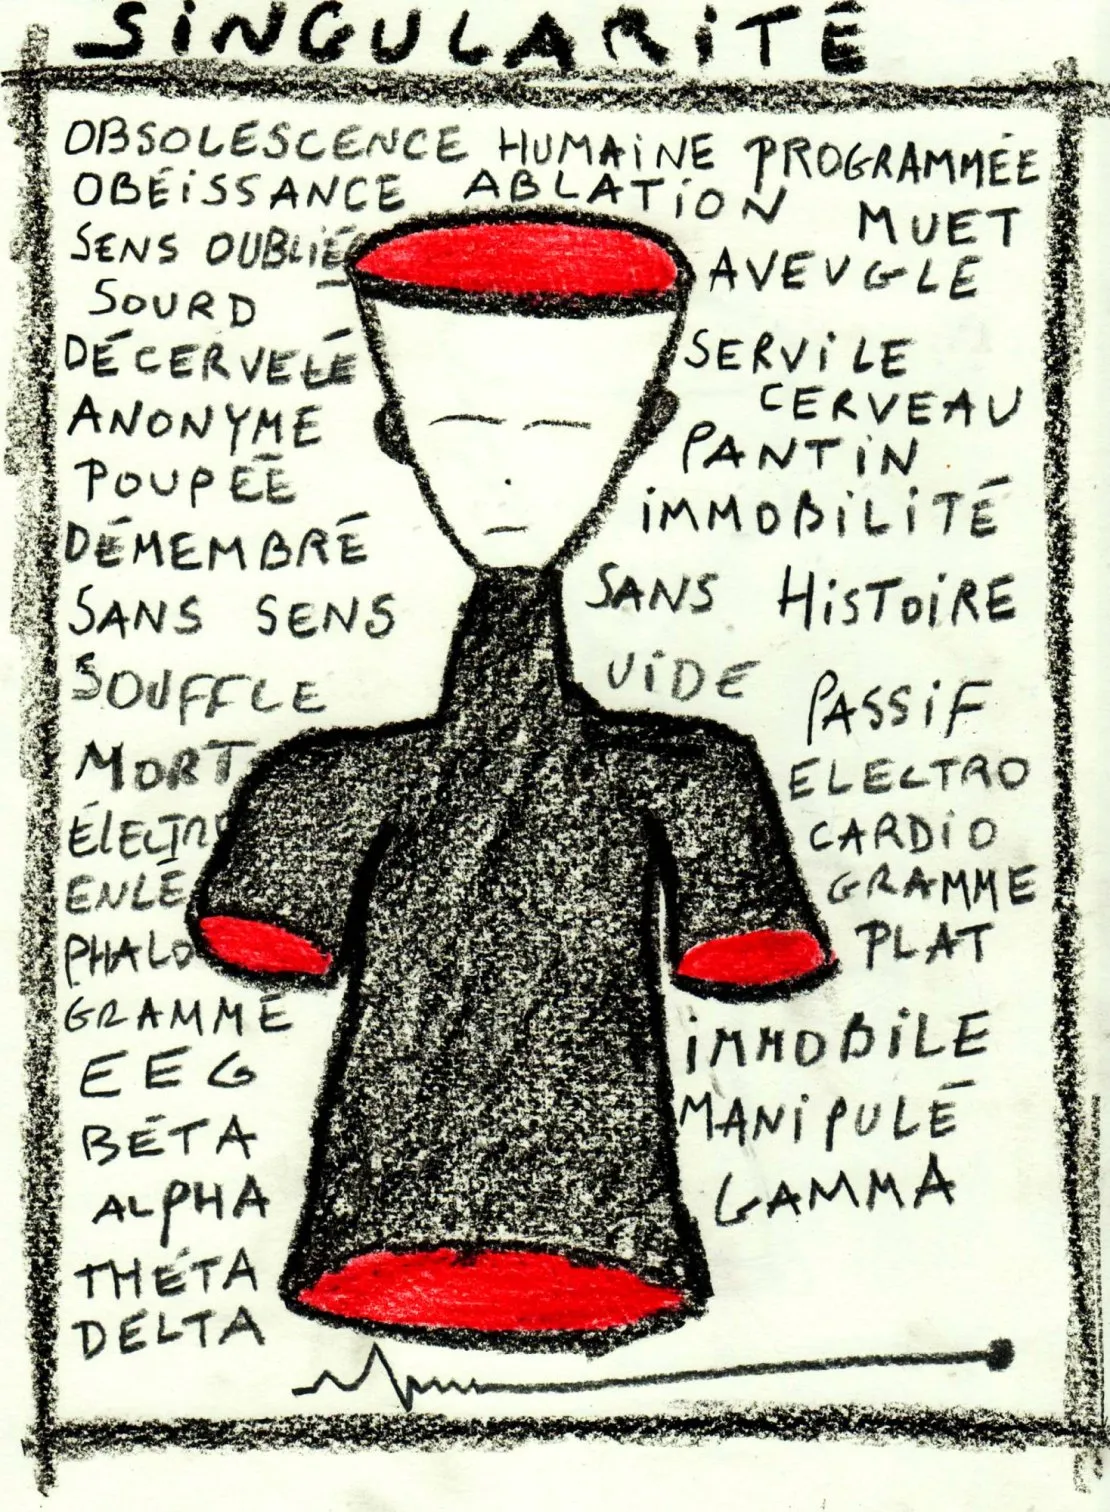 SiNGULARiTÉ
OBSOLESCENCE HUMAiNE PROGRAMMÉE
OBÉiSSANCE ABLATiON MUET
SENS OUBLiÉ AVEUGLE
SOURD
DÉCERVELÉ SERViLE
CERVEAU
ANONYME PANTiN
POUPÉE iMMOBiLiTÉ
DÉMEMBRÉ
SANS SENS SANS HiSTOiRE
SOUFFLE ViDE PASSiF
MORT ELECTRO
ÉlECTR CARDiO
ENLÉ GRAMME
PHALO PLAT
GRAMME iMMOBiLE
EEG
BÉTA MANiPULÉ
ALPHA GAMMA
THÉTA
DELTA